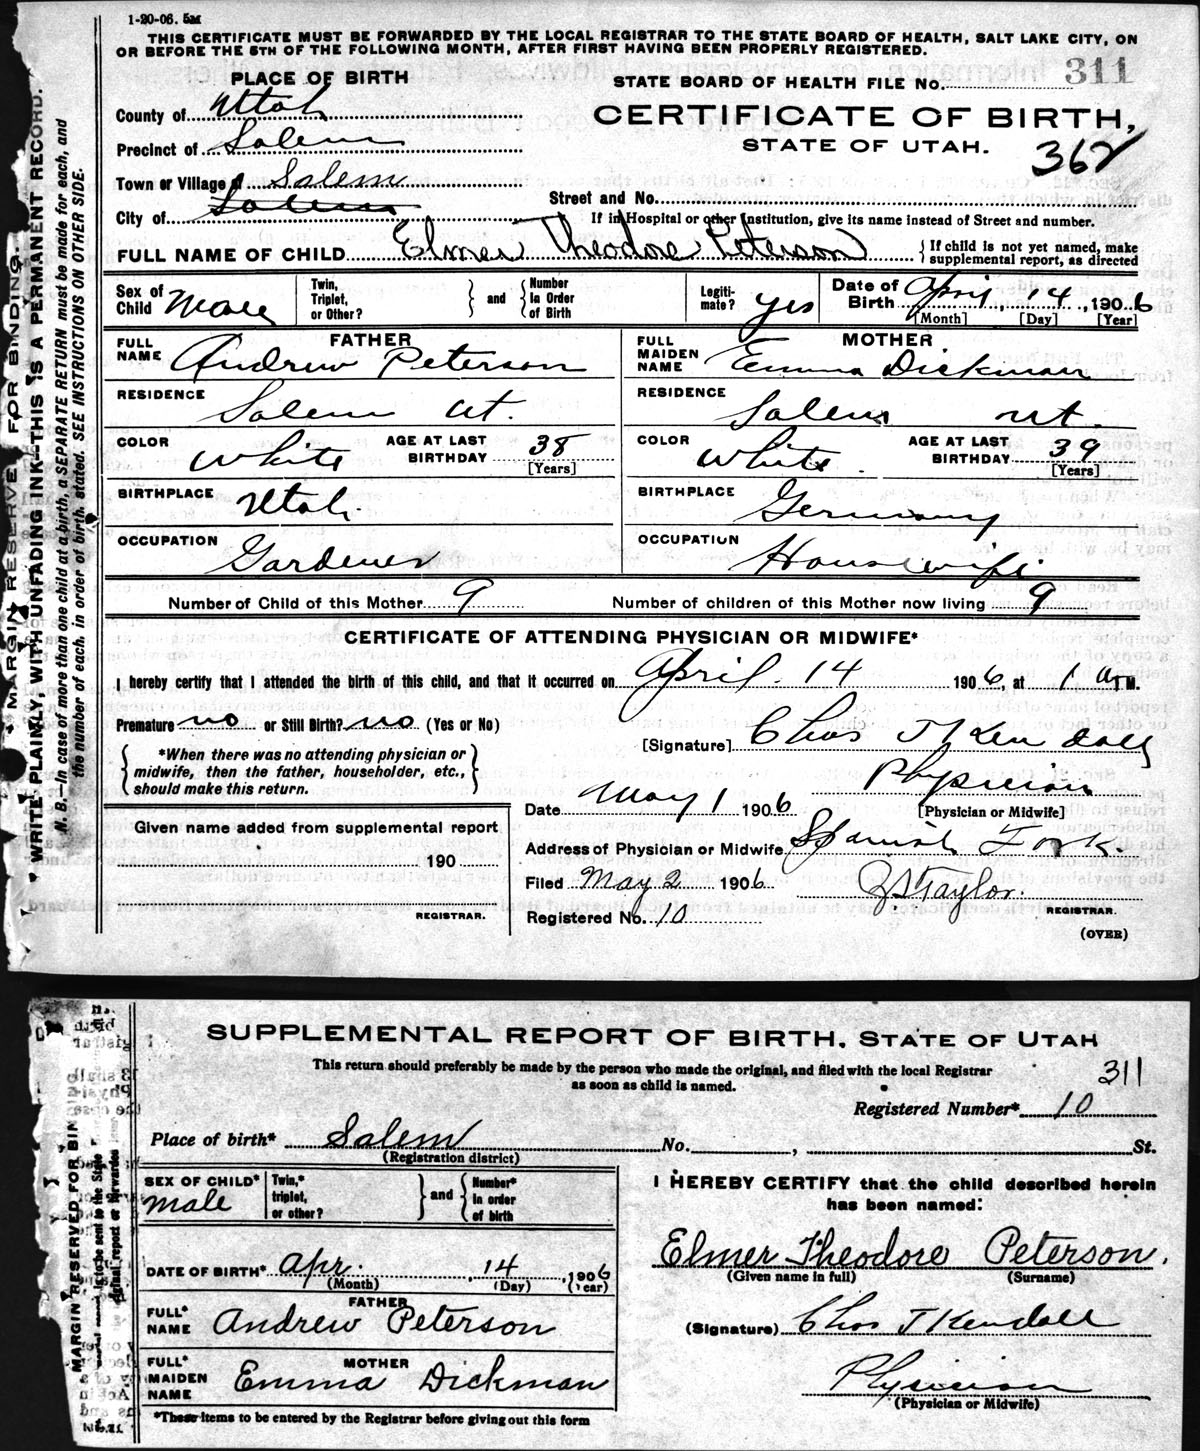 1-20-06. 5M
THIS CERTIFICATE MUST BE FORWARDED BY THE LOCAL REGISTRAR TO THE STATE BOARD OF HEALTH, SALT LAKE CITY, ON
OR BEFORE THE 5TH OF THE FOLLOWING MONTH, AFTER FIRST HAVING BEEN PROPERLY REGISTERED.
PLACE OF BIRTH
STATE BOARD OF HEALTH FILE No. 311
County of Utah
CERTIFICATE OF BIRTH,
Precinct of Salem
STATE OF UTAH.
362
Town or Village of Salem
Street and No.
City of Salem
If in Hospital or other Institution, give its name instead of Street and number.
FULL NAME OF CHILD Elmer Theodore Peterson { If child is not yet named, make supplemental report, as directed
Sex of Child Male
Twin, Triplet, or Other? } and { Number in Order of Birth
Legitimate? yes
Date of Birth April 14, 1906
[Month] [Day] [Year]
FATHER
FULL NAME Andrew Peterson
MOTHER
FULL MAIDEN NAME Emma Dickman
RESIDENCE Salem Ut.
RESIDENCE Salem Ut.
COLOR White AGE AT LAST BIRTHDAY 38 [Years]
COLOR White. AGE AT LAST BIRTHDAY 39 [Years]
BIRTHPLACE Utah.
BIRTHPLACE Germany
OCCUPATION Gardener
OCCUPATION Housewife
Number of Child of this Mother 9 Number of children of this Mother now living 9
CERTIFICATE OF ATTENDING PHYSICIAN OR MIDWIFE*
I hereby certify that I attended the birth of this child, and that it occurred on April. 14 1906, at 1 a M.
Premature no or Still Birth? no (Yes or No)
[Signature] Chas T Kendall
{ *When there was no attending physician or midwife, then the father, householder, etc., should make this return. }
Physician
[Physician or Midwife]
Date May 1 1906
Given name added from supplemental report
190
REGISTRAR.
Address of Physician or Midwife Spanish Fork.
Filed May 2 1906
Taylor.
REGISTRAR.
Registered No. 10
(OVER)
* MARGIN RESERVE FOR BINDING.
* WRITE PLAINLY, WITH UNFADING INK--THIS IS A PERMANENT RECORD.
N. B.--In case of more than one child at a birth, a SEPARATE RETURN must be made for each, and
the number of each, in order of birth, stated. SEE INSTRUCTIONS ON OTHER SIDE.
SUPPLEMENTAL REPORT OF BIRTH, STATE OF UTAH
This return should preferably be made by the person who made the original, and filed with the local Registrar
as soon as child is named.
311
Registered Number* 10
Place of birth* Salem No. , St.
(Registration district)
SEX OF CHILD* male
Twin,* triplet, or other? } and { Number* in order of birth
I HEREBY CERTIFY that the child described herein
has been named:
Elmer Theodore Peterson.
(Given name in full) (Surname)
DATE OF BIRTH* Apr. 14, 1906
(Month) (Day) (Year)
FATHER
FULL* NAME Andrew Peterson
(Signature) Chas T Kendall
MOTHER
FULL* MAIDEN NAME Emma Dickman
Physician
(Physician or Midwife)
*These items to be entered by the Registrar before giving out this form
MARGIN RESERVED FOR BIN